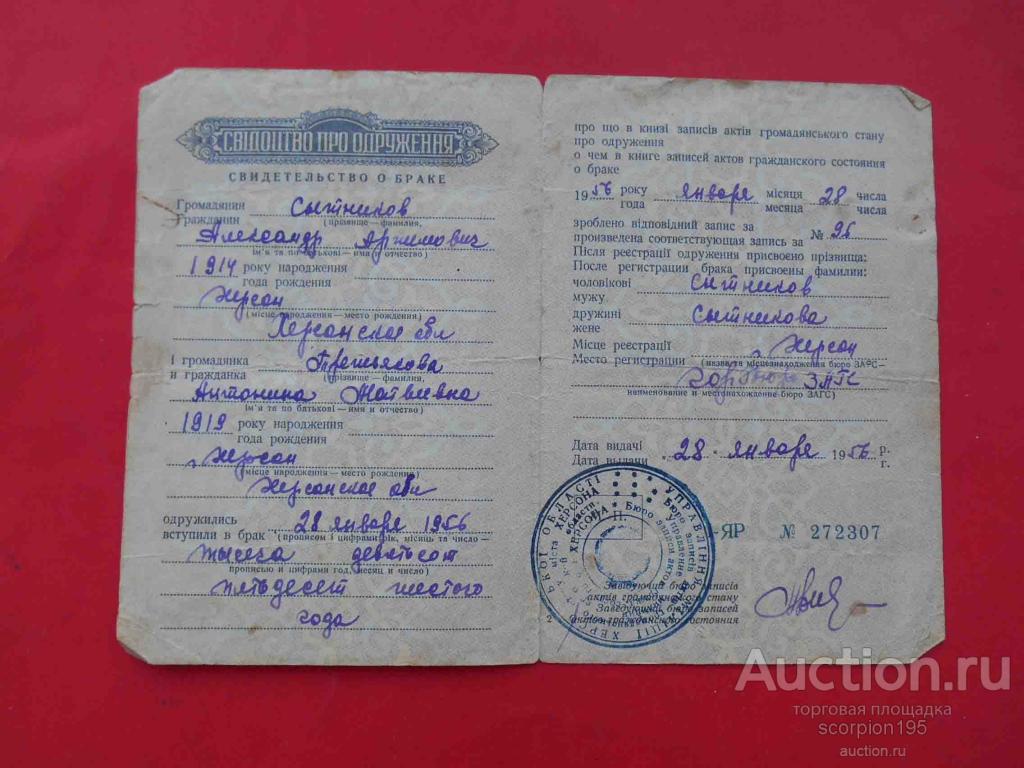 СВІДОЦТВО ПРО ОДРУЖЕННЯ
СВИДЕТЕЛЬСТВО О БРАКЕ
Громадянин Сытников
Гражданин (прізвище — фамилия,
Александр
ім'я та по батькові — имя и отчество)
1914 року народження
года рождения
Херсон
(місце народження — место рождения)
Херсонское обл
і громадянка Третьякова
и гражданка (прізвище — фамилия,
Антонина Матвеевна
ім'я та по батькові — имя и отчество)
1919 року народження
года рождения
Херсон
(місце народження — место рождения)
Херсонское обл
одружились 28 января 1956
вступили в брак (прописом і цифрами рік, місяць та число —
тысеча девятьсот
прописью и цифрами год, месяц и число)
пятьдесят шестого
года
2
про що в книзі записів актів громадянського стану
про одруження
о чем в книге записей актов гражданского состояния
о браке
1956 року января місяця 28 числа
года месяца числа
зроблено відповідний запис за
произведена соответствующая запись за № 96
Після реєстрації одруження присвоєно прізвища:
После регистрации брака присвоены фамилии:
чоловікові Сытников
мужу
дружині Сытникова
жене
Місце реєстрації Херсон
Место регистрации (назва та місцезнаходження бюро ЗАГС —
Горбюро ЗАГС
наименование и местонахождение бюро ЗАГС)
Дата видачі 28 января 1956 р.
Дата выдачи г.
-ЯР № 272307
Завідуючий бюро записів
актів громадянського стану
Заведующий бюро записей
актов гражданского состояния
Auction.ru
торговая площадка
scorpion195
auction.ru